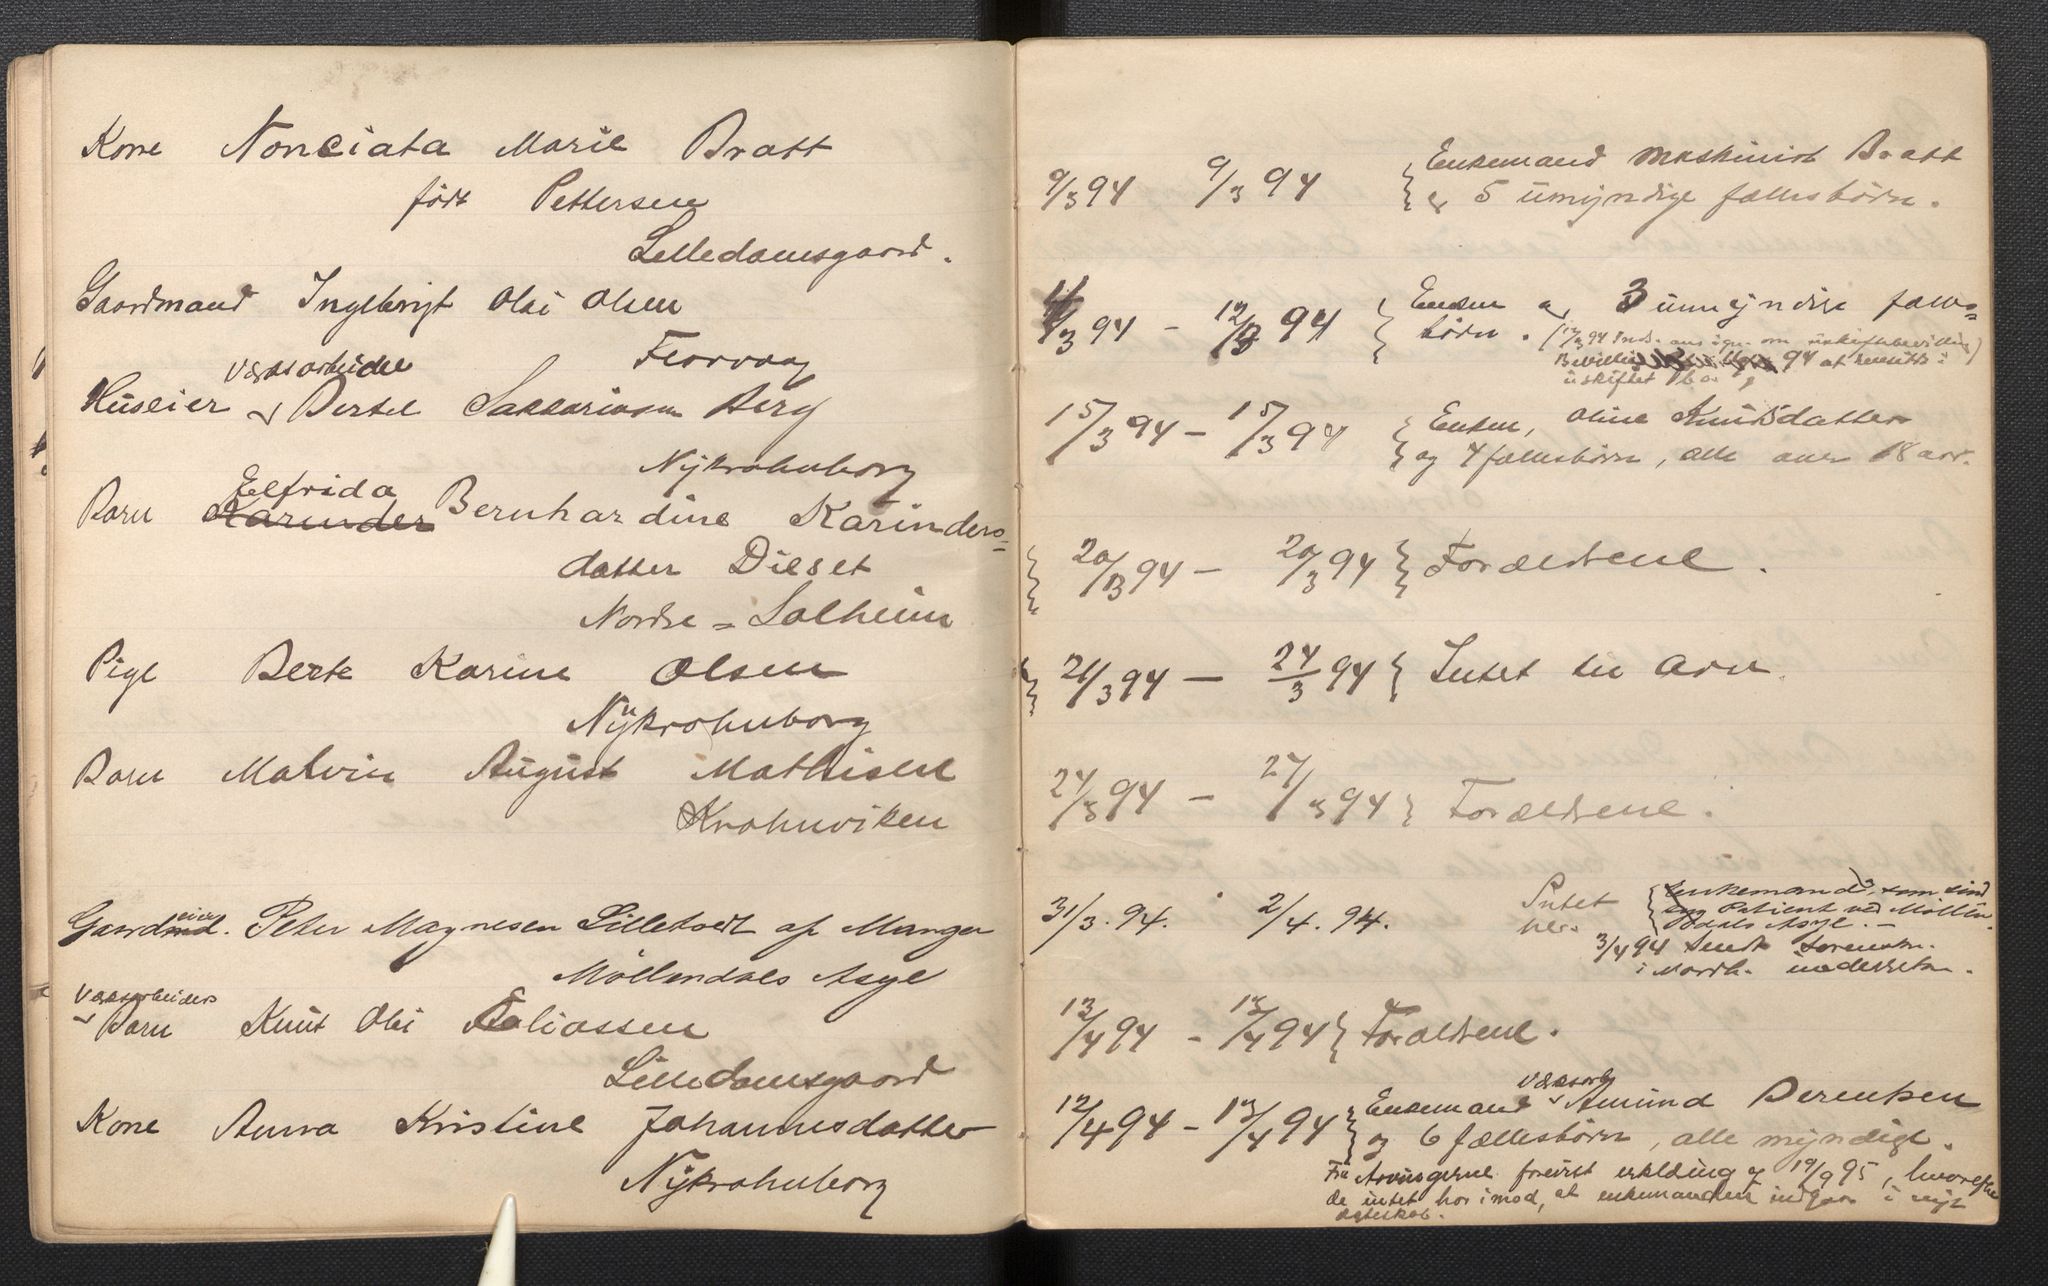 Kone Nonciata Marie Bratt
født Pettersen
Lilledamsgaard.
Gaardmand Ingebrigt Olai Olsen
Florvaag
Værksarbeider
Huseier Bertel Sakkariassen Berg
Nykrohnborg
Elfrida
Barn Karinder Bernhardine Karinders=
datter Dilset
Nordre = Solheim
Pige Berte Karine Olsen
Nykrohnborg
Barn Malvin August Mathisen
Krohnviken
eier
Gaardmd. Peter Magnesen Lilletvedt af Manger
Möllendals Asyl
Værksarbeiders
Barn Knut Olai Eliassen
Lilledamsgaard
Kone Anna Kristine Johannesdatter
Nykrohnborg
9/3 94 9/3 94 Enkemand Maskinist Bratt
& 5 umyndige fællesbørn.
/3 94 - 12/3 94 Enken og 3 umyndige fælles=
børn. 94 om uskiftebevilling)
94 at hensidde i
uskiftet bo
15/3 94 - 15/3 94 Enken, Oline Knudsdatter
og 4 fællesbørn, alle over 18 aar.
20/3 94 - 20/3 94 Forældrene.
21/3 94 - 24/3 94 Intet til Arv.
24/3 94 - 27/3 94 Forældrene.
31/3. 94. 2/4. 94. Intet her. Enkemand, som sind
syg Patient ved Möllen
dals Asyl. -
3/4 94 Sendt Sorenskr.
i Nordh. underretn.
13/4 94 - 13/4 94 Forældrene.
Værksarb
12/4 94 - 13/4 94 Enkemand Amund Berentsen
og 6 fællesbørn, alle myndige.
Fra Arvingerne forevist erklæring af 19/9 95, hvorefter
de intet har imod, at enkemanden indgaar i nyt
ægteskab.